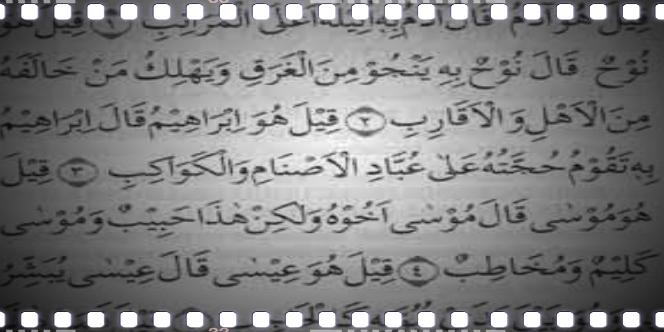 قِيلَ هُوَ آدَمُ قَالَ آدَمُ بِهِ يُنِيلُهُ أَعْلَى الْمَرَاتِبِ ١ قِيلَ هُوَ
نُوْحٌ قَالَ نُوْحٌ بِهِ يَنْجُوْ مِنَ الْغَرَقِ وَيَهْلِكُ مَنْ خَالَفَهُ
مِنَ الْاَهْلِ وَ الْاَقَارِبِ ٢ قِيْلَ هُوَ اِبْرَاهِيْمُ قَالَ اِبْرَاهِيْمُ
بِهِ تَقُوْمُ حُجَّتُهُ عَلٰى عُبَّادِ الْاَصْنَامِ وَالْكَوَاكِبِ ٣ قِيْلَ
هُوَ مُوْسٰى قَالَ مُوْسٰى اَخُوْهُ وَلٰكِنْ هٰذَا حَبِيْبٌ وَمُوْسٰى
كَلِيْمٌ وَمُخَاطِبٌ ٤ قِيْلَ هُوَ عِيْسٰى قَالَ عِيْسٰى يُبَشِّرُ